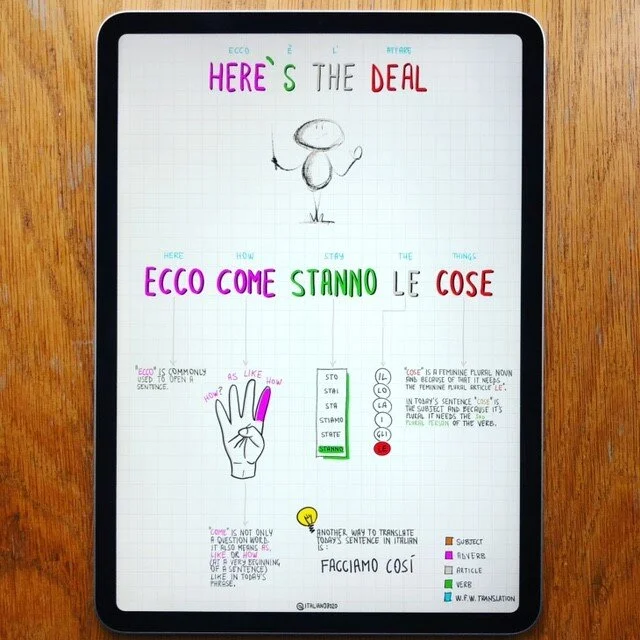 ECCO È L' AFFARE
HERE'S THE DEAL
HERE HOW STAY THE THINGS
ECCO COME STANNO LE COSE
"ECCO" IS COMMONLY
USED TO OPEN A
SENTENCE.
HOW? AS LIKE HOW
STO
STAI
STA
STIAMO
STATE
STANNO
IL
LO
LA
I
GLI
LE
"COSE" IS A FEMININE PLURAL NOUN
AND BECAUSE OF THAT IT NEEDS
THE FEMININE PLURAL ARTICLE "LE".
IN TODAY'S SENTENCE "COSE" IS
THE SUBJECT AND BECAUSE IT'S
PLURAL IT NEEDS THE 3RD
PLURAL PERSON OF THE VERB.
"COME" IS NOT ONLY
A QUESTION WORD.
IT ALSO MEANS AS,
LIKE OR HOW
(AT A VERY BEGINNING
OF A SENTENCE)
LIKE IN TODAY'S
PHRASE.
ANOTHER WAY TO TRANSLATE
TODAY'S SENTENCE IN ITALIAN
IS:
FACCIAMO COSÍ
SUBJECT
ADVERB
ARTICLE
VERB
W.F.W. TRANSLATION